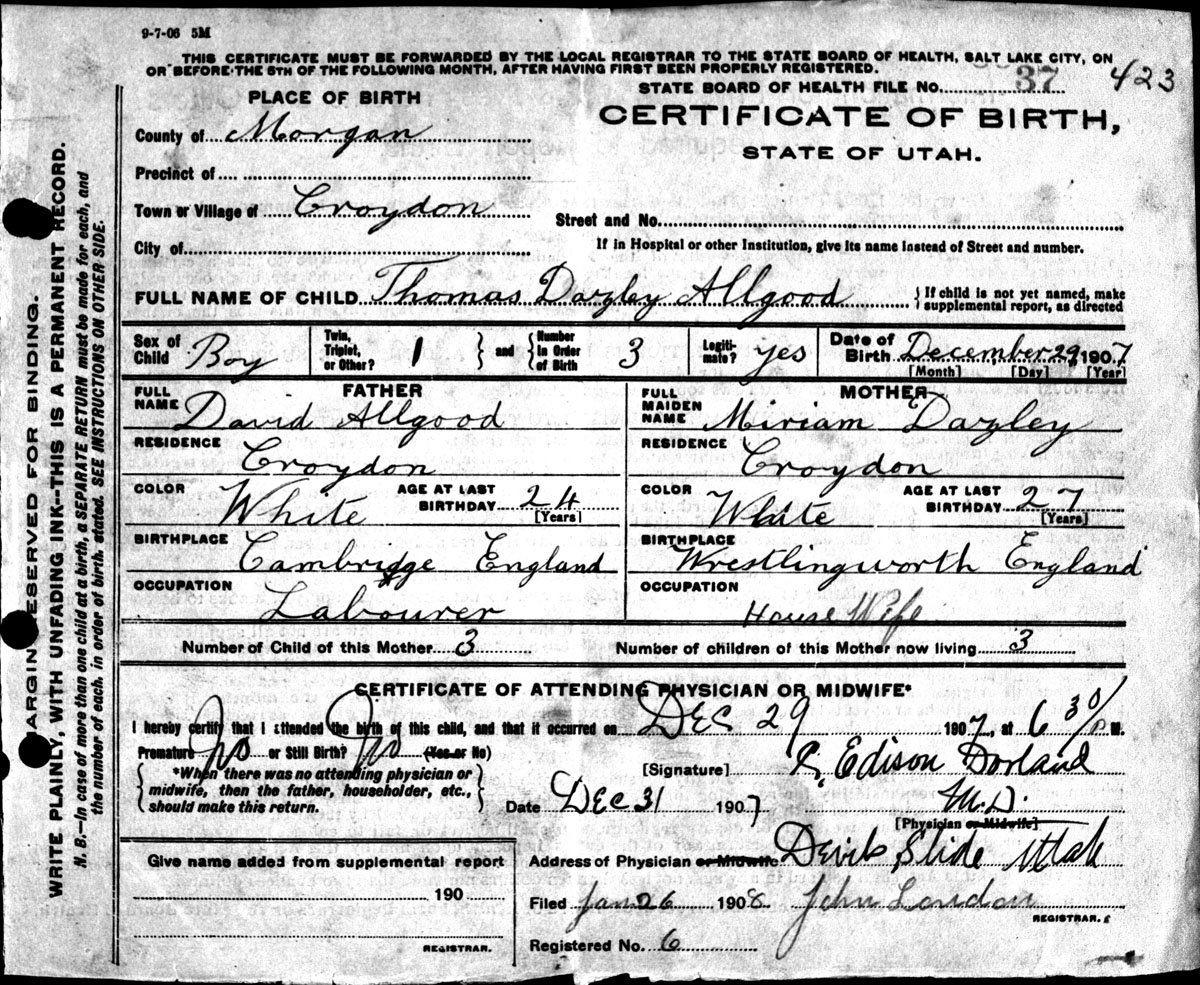 9-7-06 5M
THIS CERTIFICATE MUST BE FORWARDED BY THE LOCAL REGISTRAR TO THE STATE BOARD OF HEALTH, SALT LAKE CITY, ON
OR BEFORE THE 5TH OF THE FOLLOWING MONTH, AFTER HAVING FIRST BEEN PROPERLY REGISTERED.
STATE BOARD OF HEALTH FILE No. 37 423
PLACE OF BIRTH
CERTIFICATE OF BIRTH,
STATE OF UTAH.
County of Morgan
Precinct of
Town or Village of Croydon
Street and No.
City of
If in Hospital or other Institution, give its name instead of Street and number.
FULL NAME OF CHILD Thomas Dazley Allgood
{ If child is not yet named, make
supplemental report, as directed
Sex of Child Boy
Twin, Triplet, or Other? 1 } and { Number in Order of Birth 3
Legiti-mate? yes
Date of Birth December 29 1907
[Month] [Day] [Year]
FATHER
FULL NAME David Allgood
RESIDENCE
Croydon
COLOR White
AGE AT LAST BIRTHDAY 24
[Years]
BIRTHPLACE
Cambridge England
OCCUPATION
Labourer
MOTHER
FULL MAIDEN NAME Miriam Dazley
RESIDENCE
Croydon
COLOR White
AGE AT LAST BIRTHDAY 27
[Years]
BIRTHPLACE
Wrestlingworth England
OCCUPATION
House Wife
Number of Child of this Mother 3
Number of children of this Mother now living 3
CERTIFICATE OF ATTENDING PHYSICIAN OR MIDWIFE*
I hereby certify that I attended the birth of this child, and that it occurred on Dec 29 1907, at 6 30/P M.
Premature No or Still Birth? No (Yes or No)
*When there was no attending physician or
midwife, then the father, householder, etc.,
should make this return.
[Signature] P. Edison Dorland
M.D.
Date Dec 31 1907
[Physician or Midwife]
Address of Physician or Midwife Devils Slide Utah
Give name added from supplemental report
190
REGISTRAR.
Filed Jan 26 1908 John London
REGISTRAR.
Registered No. 6
MARGIN RESERVED FOR BINDING.
WRITE PLAINLY, WITH UNFADING INK--THIS IS A PERMANENT RECORD.
N. B.—In case of more than one child at a birth, a SEPARATE RETURN must be made for each, and
the number of each, in order of birth, stated. SEE INSTRUCTIONS ON OTHER SIDE.